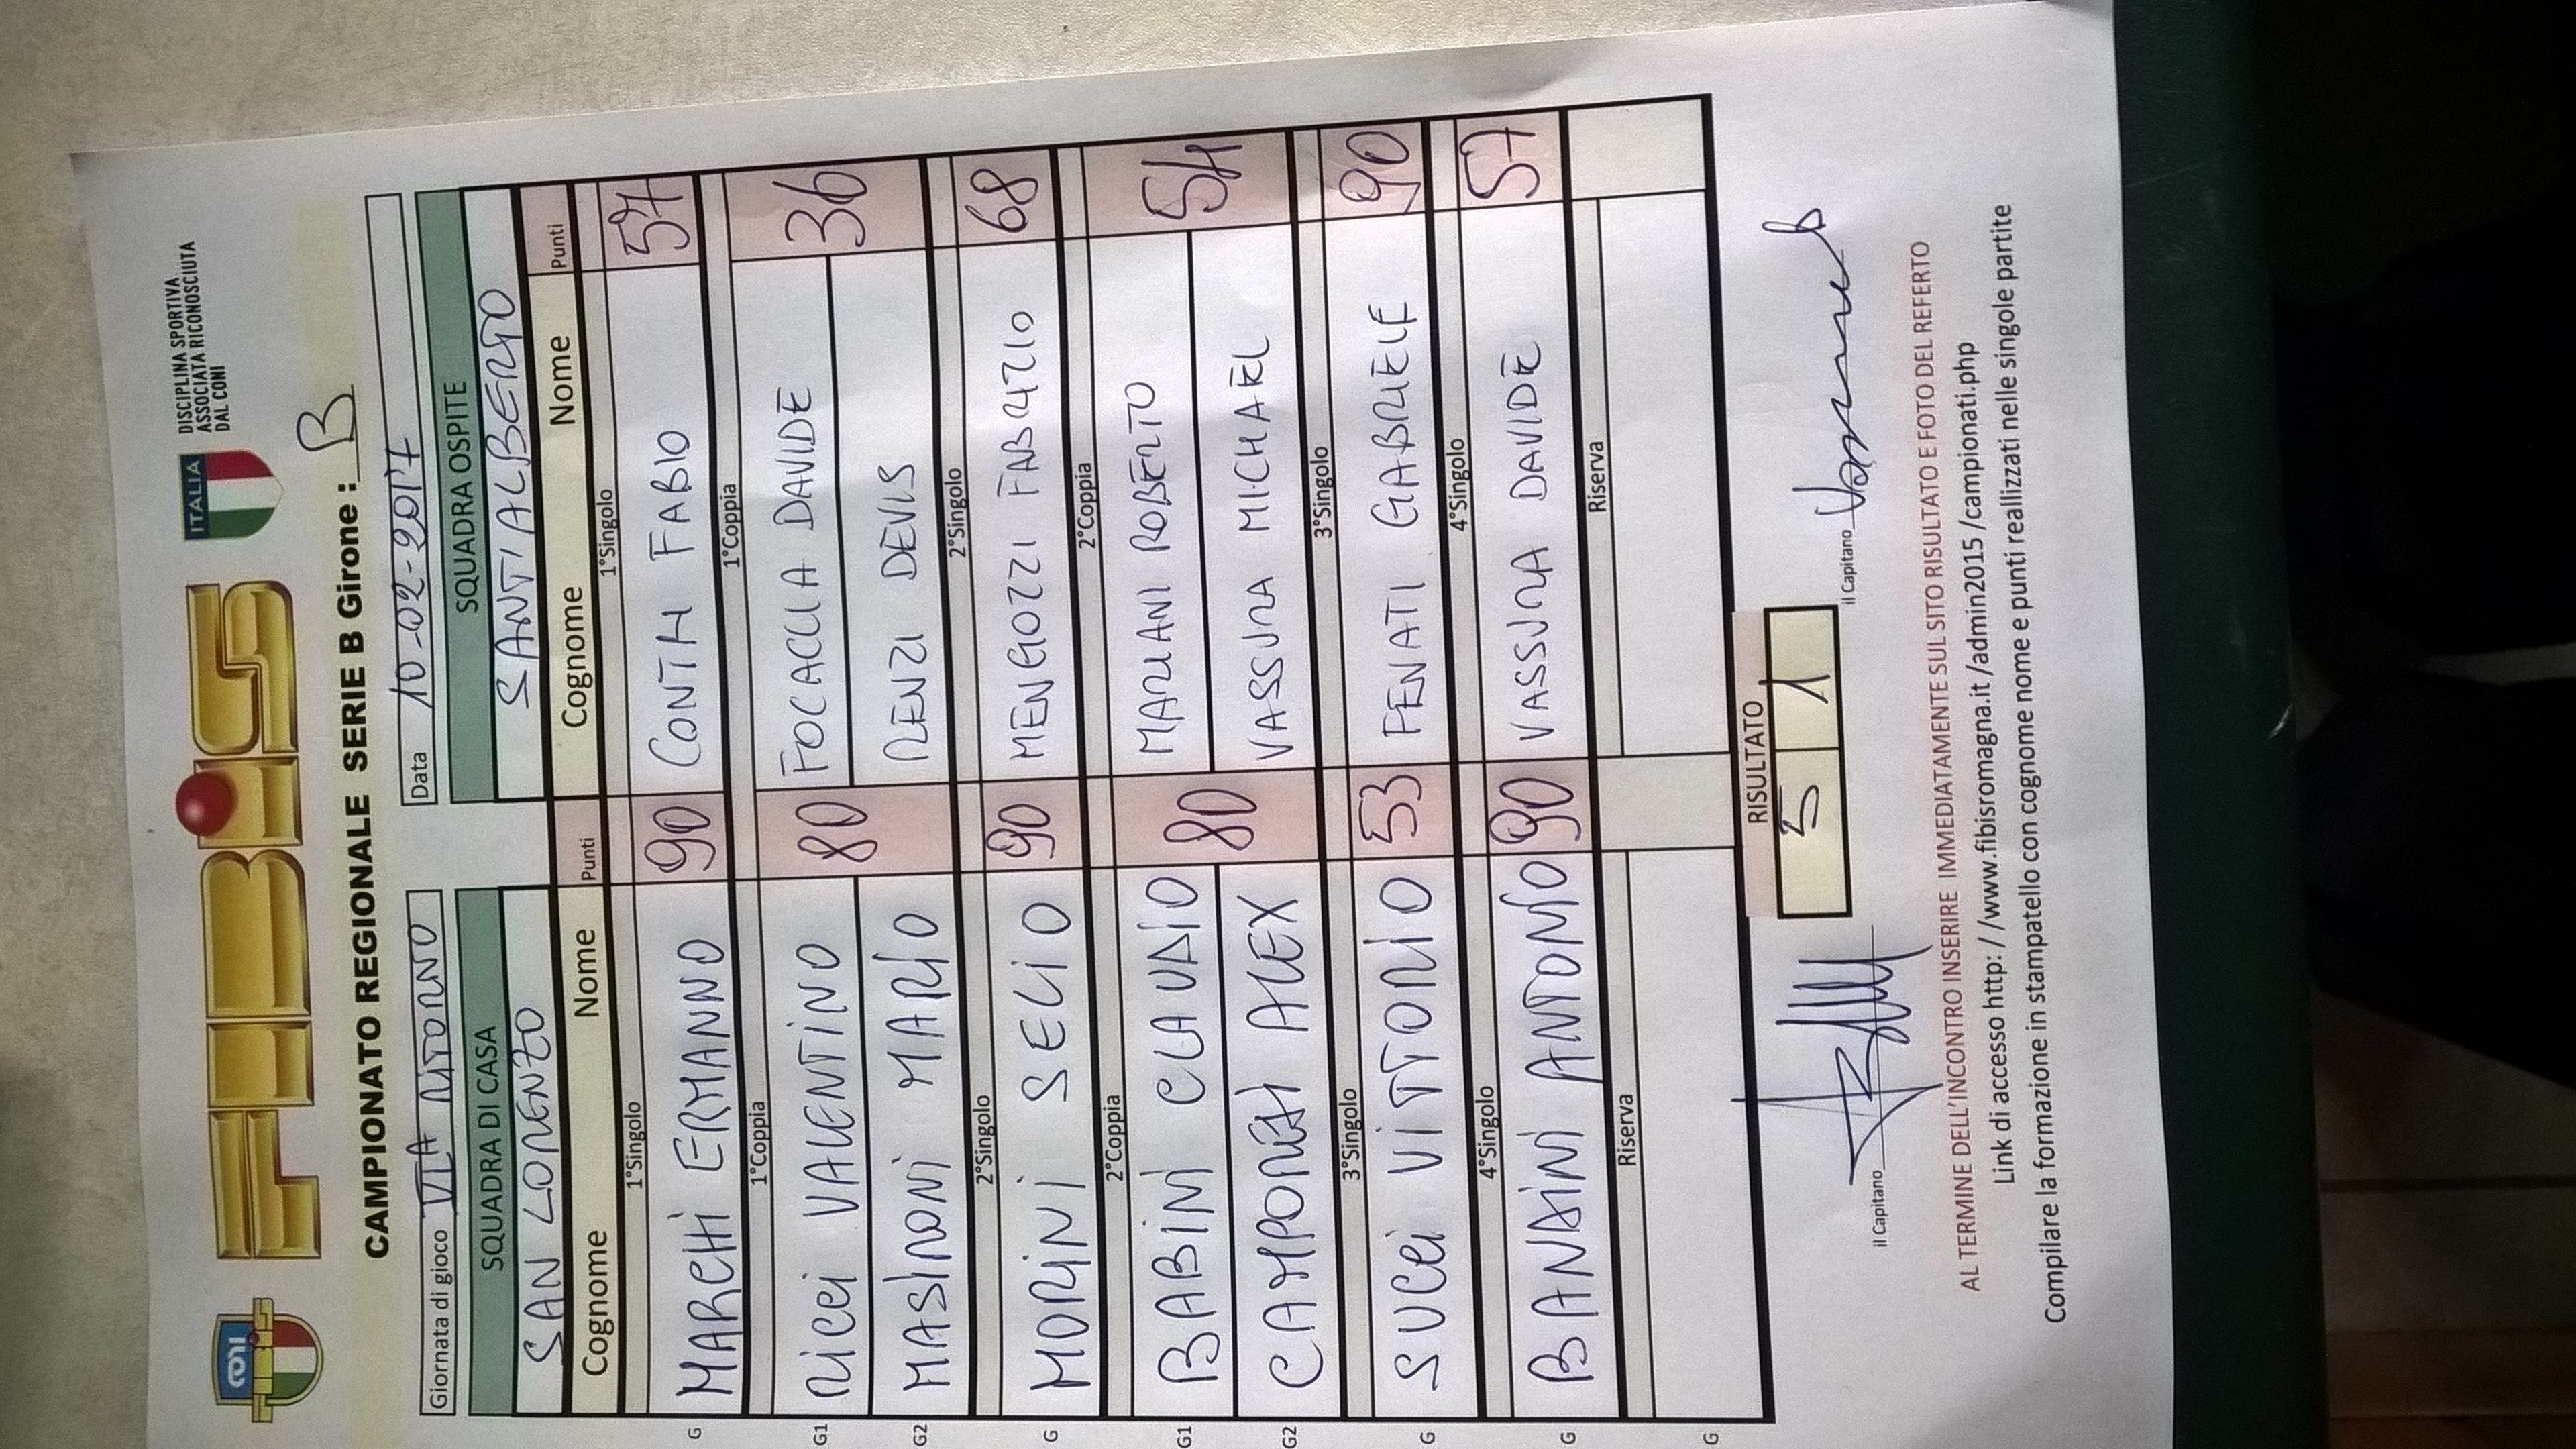 CONI
FIBIS
FIBiS
ITALIA
DISCIPLINA SPORTIVA
ASSOCIATA RICONOSCIUTA
DAL CONI
CAMPIONATO REGIONALE SERIE B Girone : B
Giornata di gioco VII A RITORNO
Data 10-02-2017
SQUADRA DI CASA SQUADRA OSPITE
SAN LORENZO SANT'ALBERTO
Cognome Nome Punti Cognome Nome Punti
1°Singolo 1°Singolo
G MARCHI ERMANNO 90 CONTI FABIO 57
1°Coppia 1°Coppia
G1 RICCI VALENTINO 80 FOCACCIA DAVIDE 36
G2 MASIRONI MARIO RENZI DEVIS
2°Singolo 2°Singolo
G MORINI SELIO 90 MENGOZZI FABRIZIO 68
2°Coppia 2°Coppia
G1 BABINI CLAUDIO 80 MARIANI ROBERTO 54
G2 CAMPORESI ALEX VASSURA MICHAEL
3°Singolo 3°Singolo
G SUCCI VITTORIO 53 FENATI GABRIELE 90
4°Singolo 4°Singolo
G BANDINI ANTONIO 90 VASSURA DAVIDE 57
Riserva Riserva
G
RISULTATO
5 1
il Capitano il Capitano
AL TERMINE DELL'INCONTRO INSERIRE IMMEDIATAMENTE SUL SITO RISULTATO E FOTO DEL REFERTO
Link di accesso http: / /www.fibisromagna.it /admin2015 /campionati.php
Compilare la formazione in stampatello con cognome nome e punti reallizzati nelle singole partite